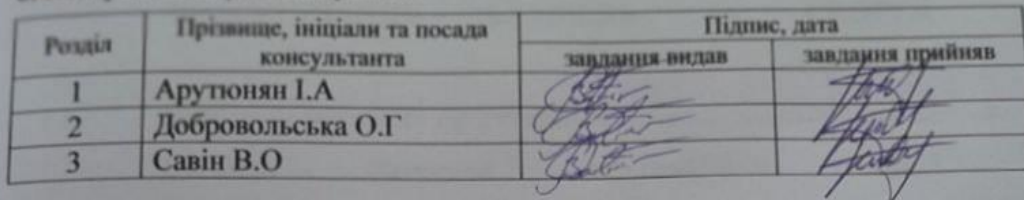 Розділ
Прізвище, ініціали та посада
консультанта
Підпис, дата
завдання видав
завдання прийняв
1
Арутюнян І.А
2
Добровольська О.Г
3
Савін В.О